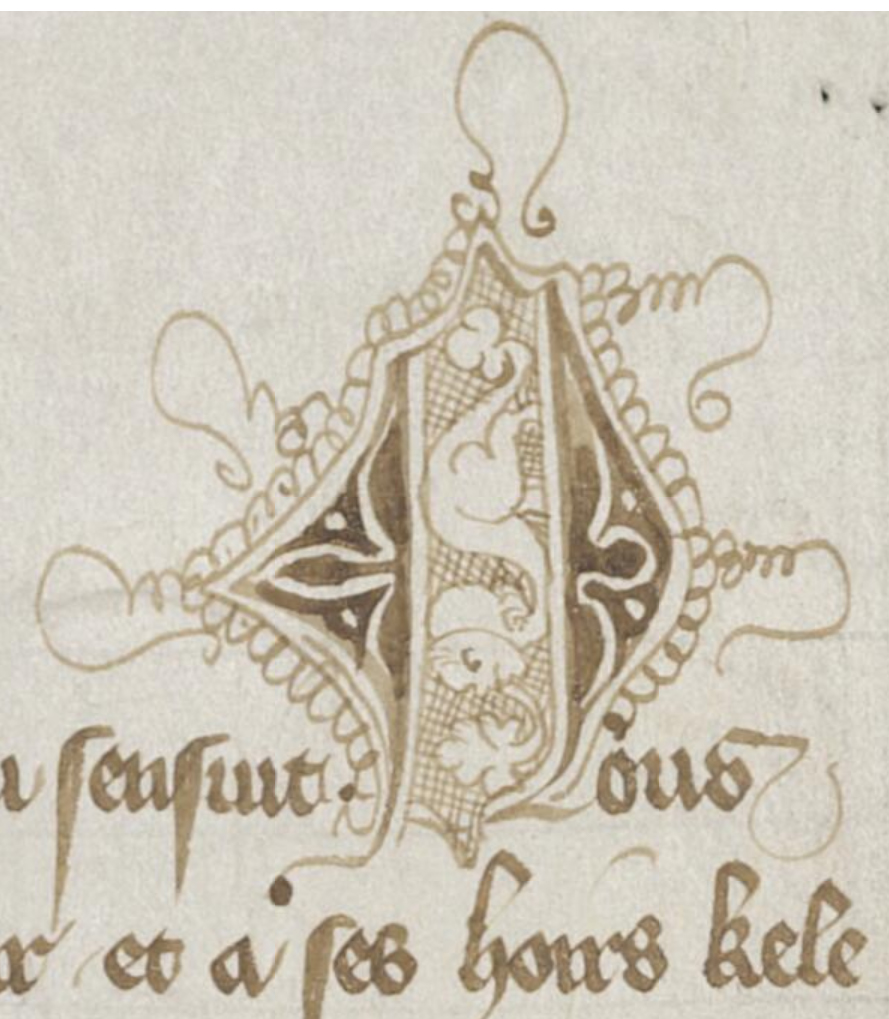 sensuit. Nous
et a ses hoirs kele